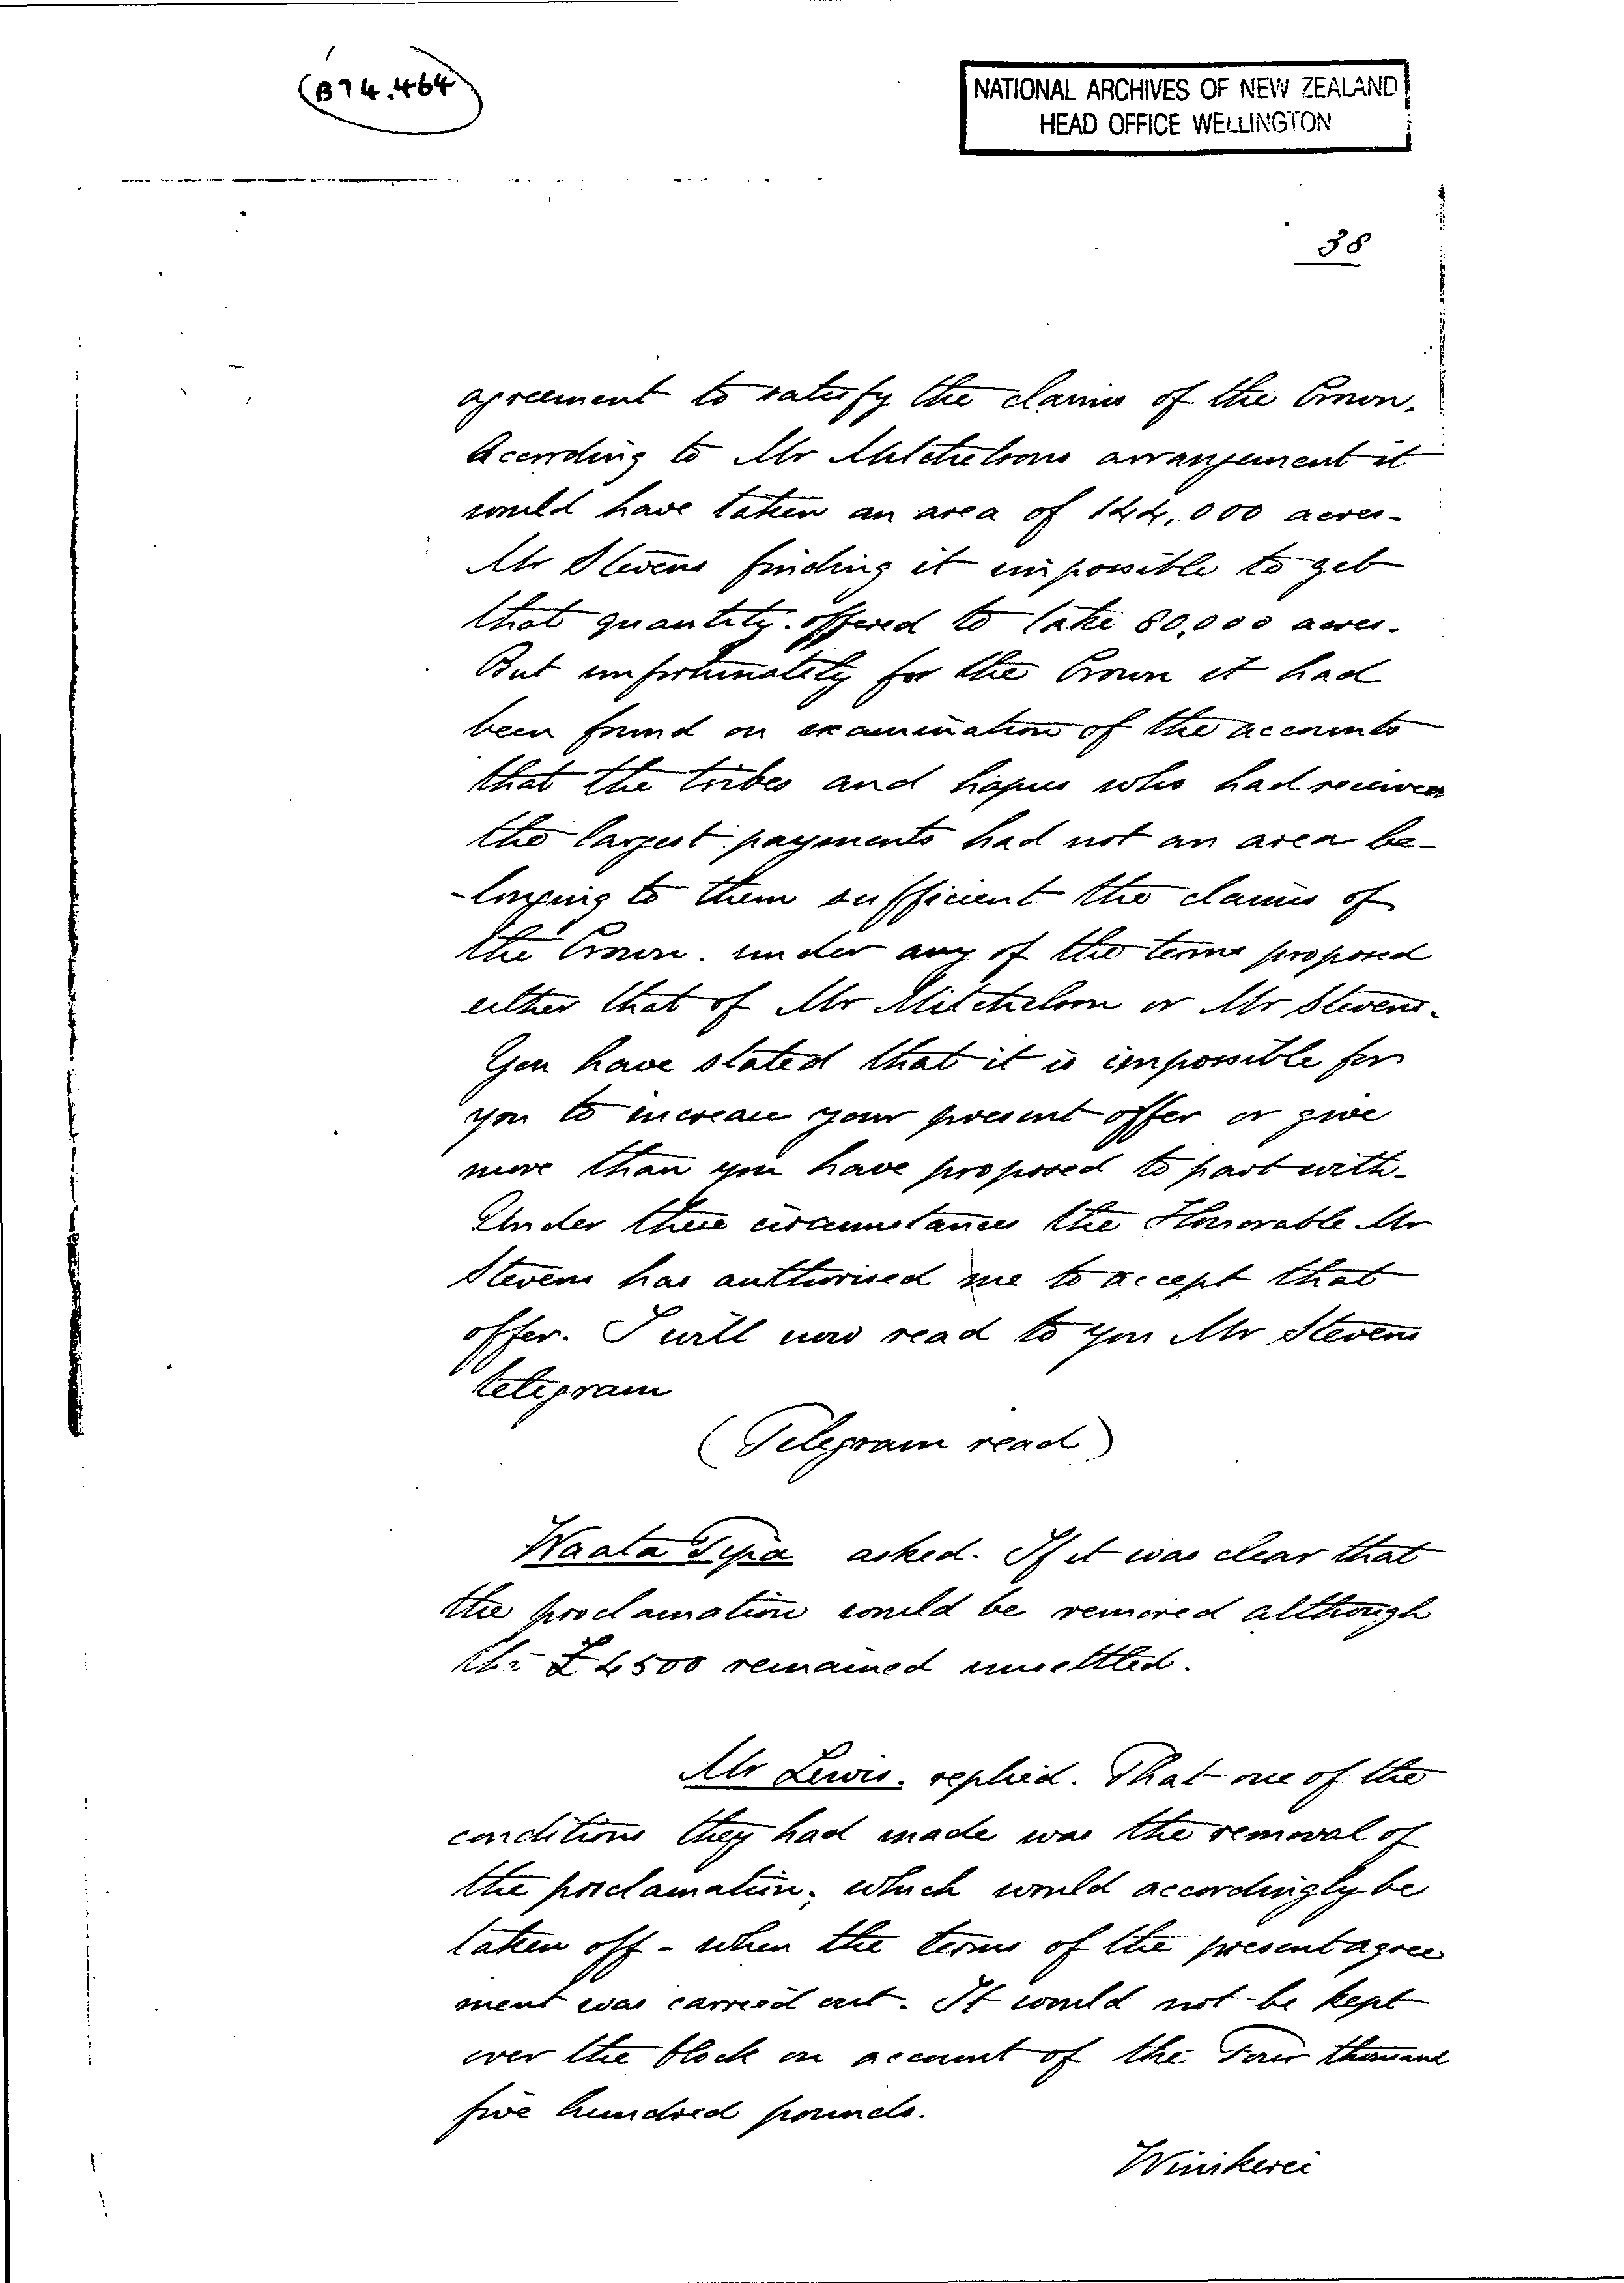 B94.464
NATIONAL ARCHIVES OF NEW ZEALAND
HEAD OFFICE WELLINGTON
38
agreement to satisfy the claims of the Crown.
According to Mr Mitchelsons arrangement it
would have taken an area of 144,000 acres.
Mr Stevens finding it impossible to get
that quantity offered to take 80,000 acres.
But unfortunately for the Crown it had
been found on examination of the accounts
that the tribes and hapus who had received
the largest payments had not an area be-
-longing to them sufficient the claims of
the Crown. under any of the terms proposed
either that of Mr Mitchelson or Mr Stevens.
You have stated that it is impossible for
you to increase your present offer or give
more than you have proposed to part with.
Under these circumstances the Honorable Mr
Stevens has authorised me to accept that
offer. I will now read to you Mr Stevens
telegram
(Telegram read)
Waata Tipa asked. If it was clear that
the proclamation would be removed although
the £4500 remained unsettled.
Mr Lewis. replied. That one of the
conditions they had made was the removal of
the proclamation; which would accordingly be
taken off - when the terms of the present agree
ment was carried out. It would not be kept
over the block on account of the Four thousand
five hundred pounds.
Winikerei